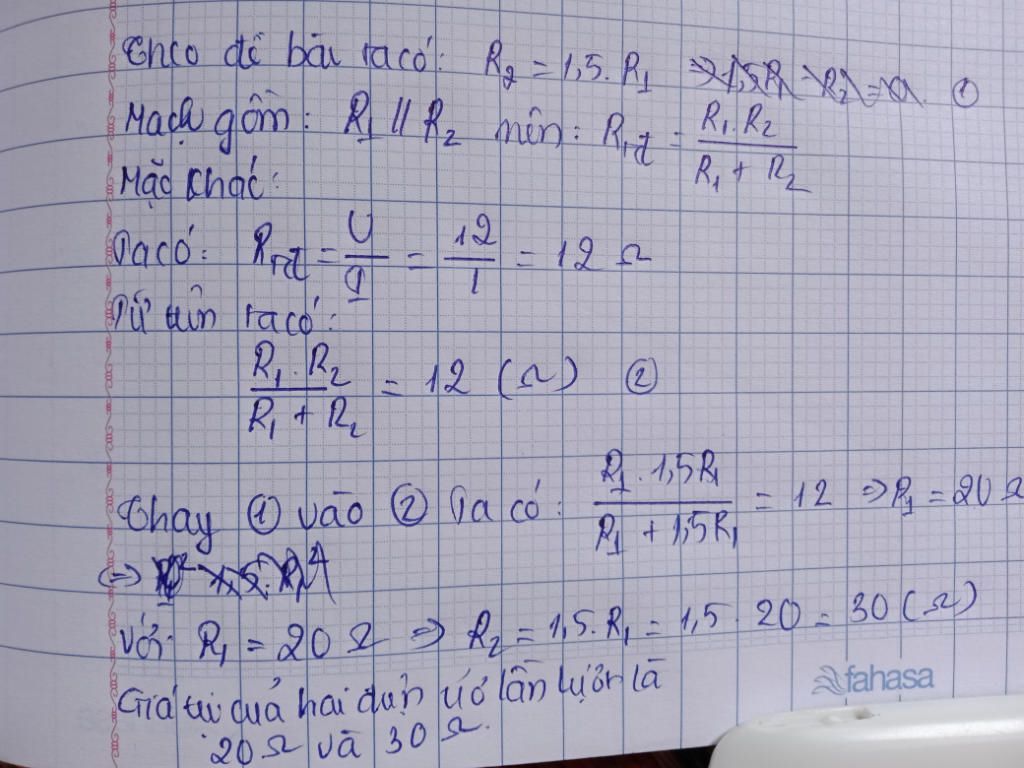 Theo đề bài ta có: R₂ = 1,5.R₁ ①
Mạch gồm: R₁ // R₂ nên: Rtđ = R₁.R₂ / R₁ + R₂
Mặc khác:
Ta có: Rtđ = U/I = 12/1 = 12 Ω
Từ trên ta có:
R₁.R₂ / R₁ + R₂ = 12 (Ω) ②
Thay ① vào ② Ta có: R₁.1,5R₁ / R₁ + 1,5R₁ = 12 ⇒ R₁ = 20 Ω
⇔
Với: R₁ = 20 Ω ⇒ R₂ = 1,5.R₁ = 1,5 . 20 = 30 (Ω)
Giá trị của hai điện trở lần lượt là
20 Ω và 30 Ω.
fahasa